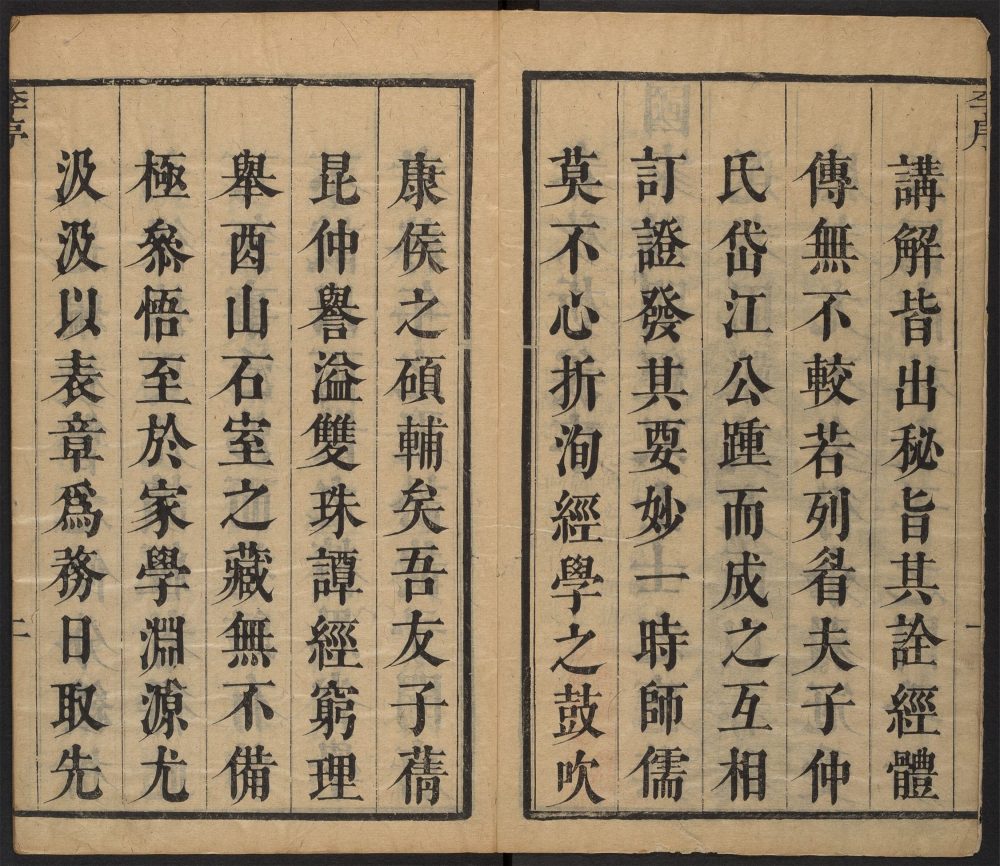 講解皆出秘旨其詮經體
傳無不較若列眉夫子仲
氏岱江公踵而成之互相
訂證發其要妙一時師儒
莫不心折洵經學之鼓吹
康侯之碩輔矣吾友子蒨
昆仲譽溢雙珠譚經窮理
舉酉山石室之藏無不備
極叅悟至於家學淵源尤
汲汲以表章爲務日取先